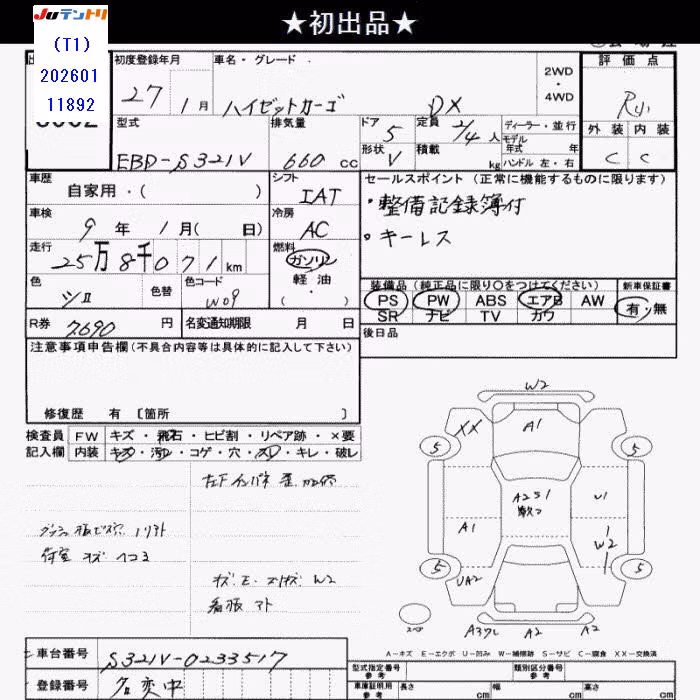 JUテントリ
(T1)
202601
11892
★初出品★
初度登録年月
27年 1月
車名・グレード
ハイゼットカーゴ DX
2WD
・
4WD
評価点
R小
外装 内装
C C
型式
EBD-S321V
排気量
660 cc
ドア
5
形状
V
定員
2/4 人
積載
kg
ディーラー・並行
モデル
年式 年
ハンドル 左・右
車歴
自家用・( )
シフト
IAT
セールスポイント(正常に機能するものに限ります)
・整備記録簿付
・キーレス
車検
9年 1月( 日)
冷房
AC
走行
25万8千071km
燃料
ガソリン
軽油
( ・ )
色
シロ
色替
色コード
W09
装備品(純正品に限り○をつけてください)
PS PW ABS エアB AW
SR ナビ TV カワ
新車保証書
有・無
R券
7690 円
名変通知期限 月 日
後日品
注意事項申告欄(不具合内容等は具体的に記入して下さい)
修復歴 有 [箇所 ]
検査員
記入欄
FW キズ・飛石・ヒビ割・リペア跡・×要
内装 キズ・汚レ・コゲ・穴・スレ・キレ・破レ
荷室 キズ ヘコミ
W2
XX
A1
5
5
A251
U1
A1
W2
5
UA2
5
スペ
A2
A2
A-キズ E-エクボ U-凹み W-補修跡 S-サビ C-腐食 XX-交換済
車台番号
S321V-0233517
登録番号
名変中
型式指定番号
参考
類別区分番号
参考
車庫証明用
参考
長さ cm
幅 cm
高さ cm